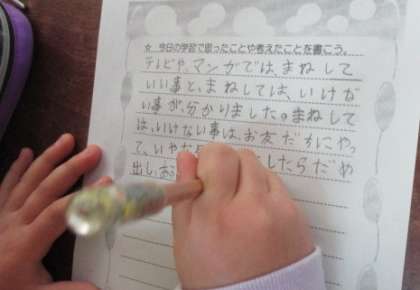 ☆ 今日の学習で思ったことや考えたことを書こう。
テレビや、マンガでは、まねして
いい事と、まねしては、いけな
い事が、分かりました。まねして
は、いけない事は、お友だちにやっ
て、いやな したらだめ
出し、お